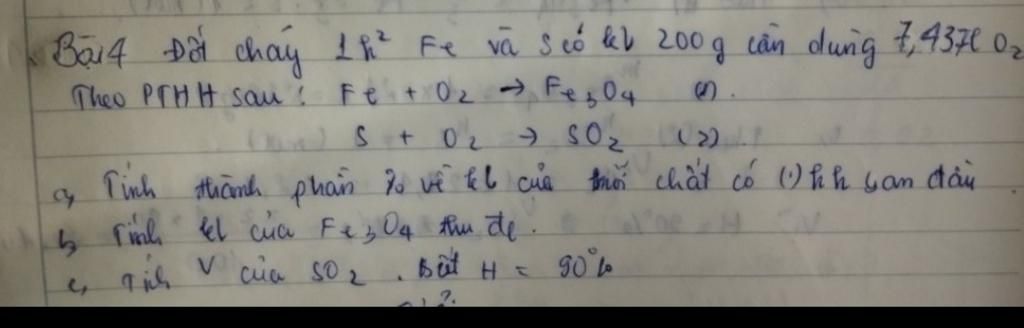 Bài 4 Đốt cháy 1 h² Fe và S có kl 200 g cần dùng 7,437l O₂
Theo PTHH sau : Fe + O₂ → Fe₃O₄ (1).
S + O₂ → SO₂ (2).
a, Tính thành phần % về kl của mỗi chất có (·) h h ban đầu.
b, Tính kl của Fe₃O₄ thu đc.
c, Tính V của SO₂. Biết H = 90%